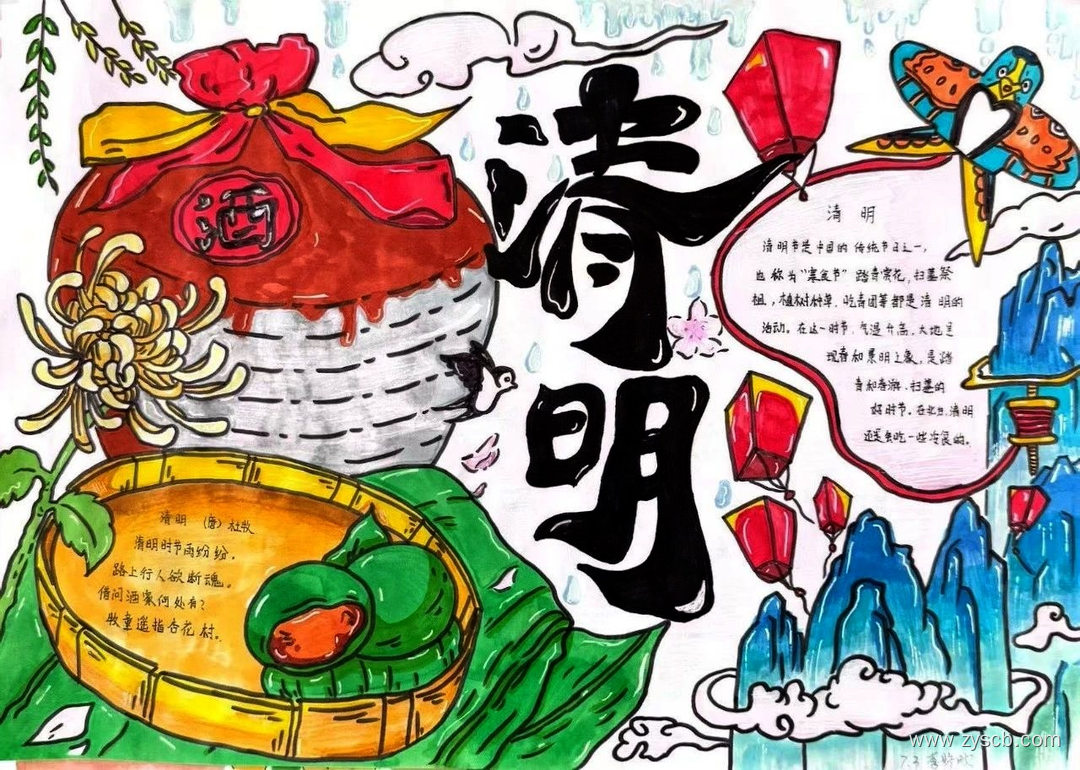 酒
清明
清 明
清明节是中国的传统节日之一，
也称为“寒食节”踏青赏花，扫墓祭
祖，植树种草，吃青团等都是清明的
活动。在这一时节，气温升高，大地呈
现春和景明之象，是踏
青和春游、扫墓的
好时节。在北方，清明
还会吃一些冷食的。
清明 （唐）杜牧
清明时节雨纷纷，
路上行人欲断魂。
借问酒家何处有？
牧童遥指杏花村。
www.zyscb.com
7.3